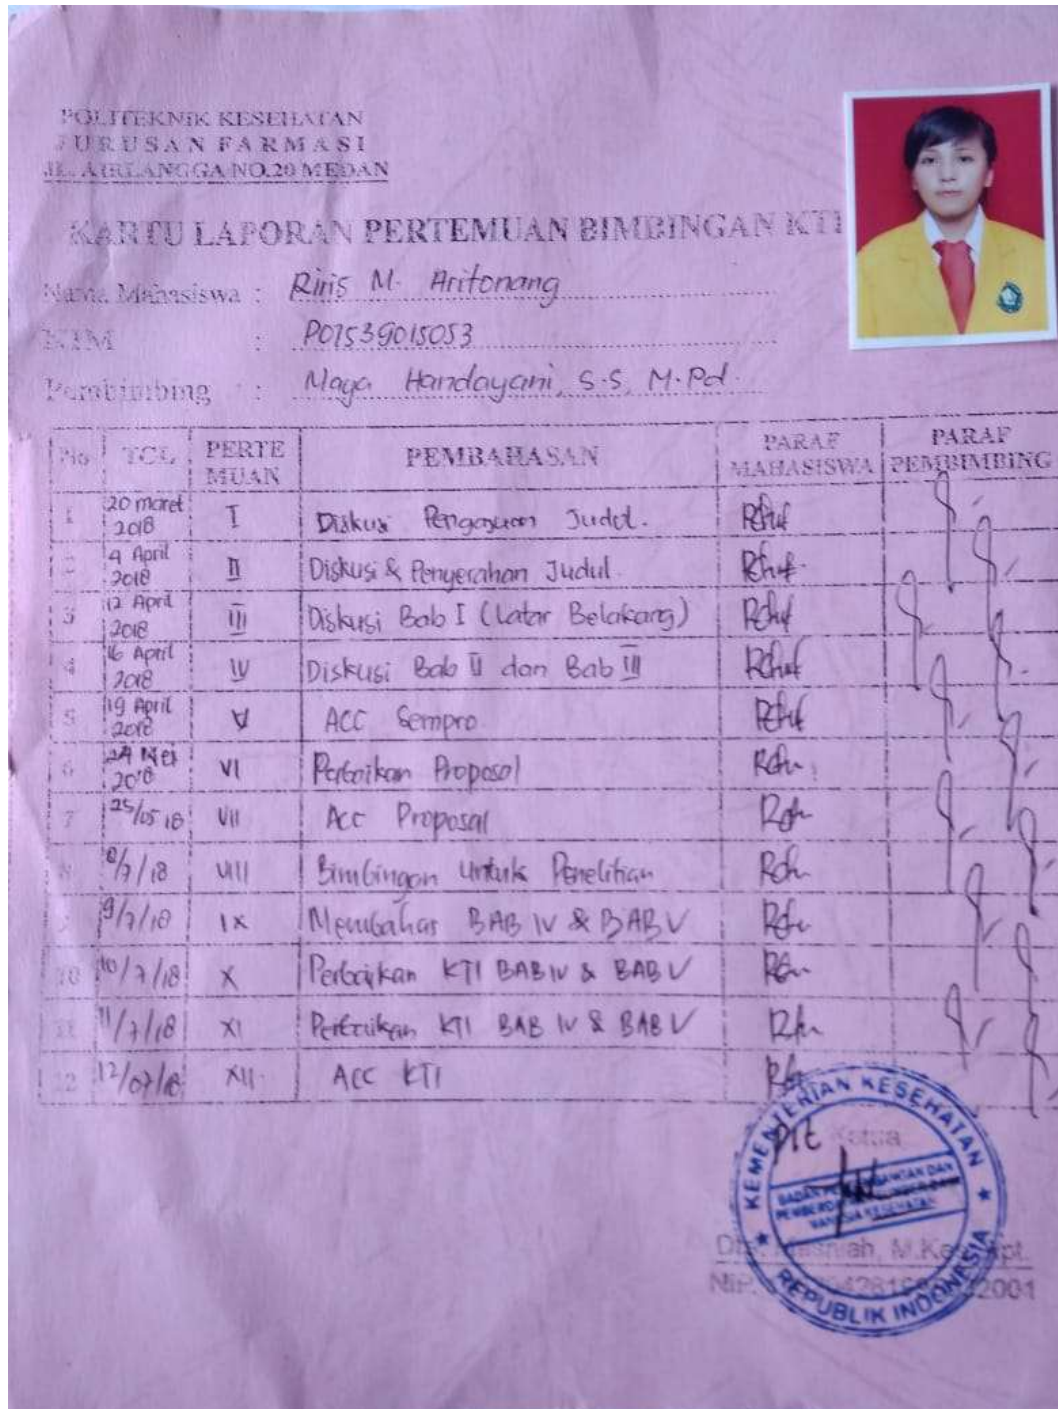 POLITEKNIK KESEHATAN
JURUSAN FARMASI
JL. AIRLANGGA NO.20 MEDAN
KARTU LAPORAN PERTEMUAN BIMBINGAN KTI
Nama Mahasiswa : Riris M. Aritonang
NIM : P07539015053
Pembimbing : Maya Handayani, S.S, M.Pd.
No TGL PERTE MUAN PEMBAHASAN PARAF MAHASISWA PARAF PEMBIMBING
1 20 maret 2018 I Diskusi Pengajuan Judul.
2 4 April 2018 II Diskusi & Penyerahan Judul.
3 12 April 2018 III Diskusi Bab I (Latar Belakang)
4 16 April 2018 IV Diskusi Bab II dan Bab III
5 19 April 2018 V ACC Sempro
6 24 Mei 2018 VI Perbaikan Proposal
7 25/05 18 VII Acc Proposal
8 /7/18 VIII Bimbingan untuk Penelitian
9 9/7/18 IX Membahas BAB IV & BAB V
10 10/7/18 X Perbaikan KTI BAB IV & BAB V
11 11/7/18 XI Perbaikan KTI BAB IV & BAB V
12 12/07/18 XII. ACC KTI
Plt Ketua
KEMENTERIAN KESEHATAN
BADAN PENGEMBANGAN DAN
MANUSIA KESEHATAN
REPUBLIK INDONESIA
M.Kes
NIP. 2001